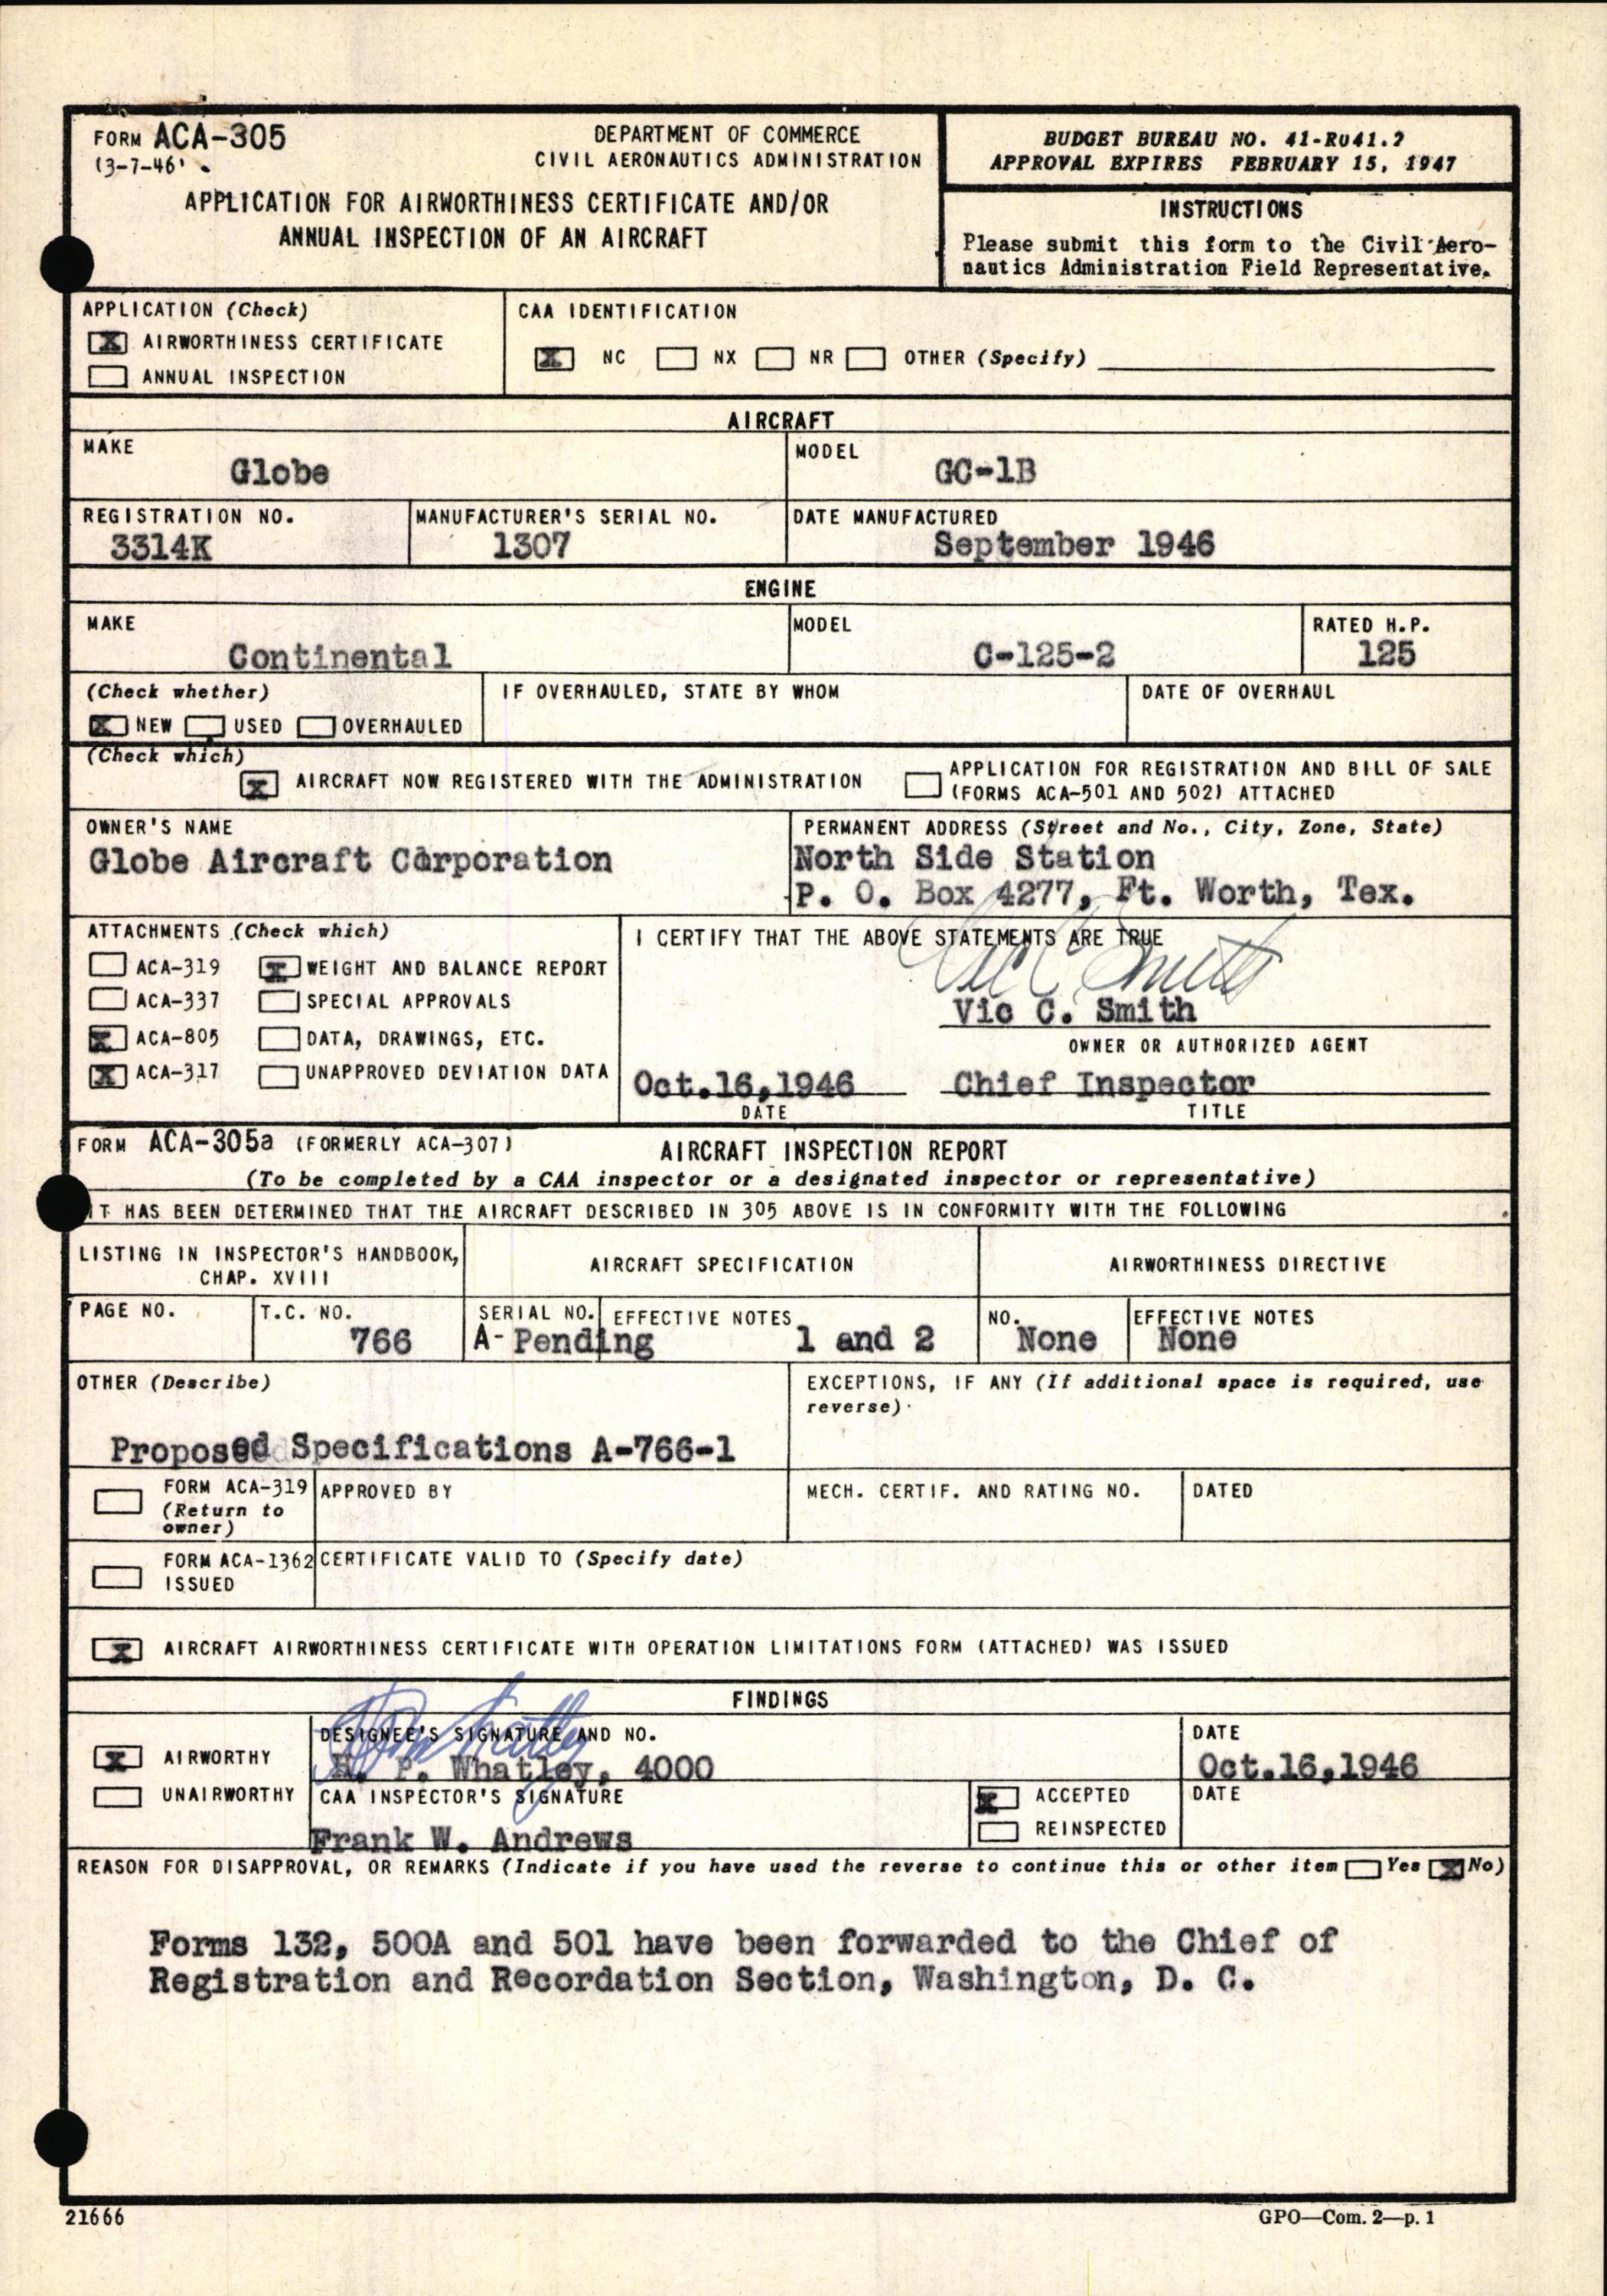 FORM ACA-305
(3-7-46)
DEPARTMENT OF COMMERCE
CIVIL AERONAUTICS ADMINISTRATION
APPLICATION FOR AIRWORTHINESS CERTIFICATE AND/OR
ANNUAL INSPECTION OF AN AIRCRAFT
BUDGET BUREAU NO. 41-R041.2
APPROVAL EXPIRES FEBRUARY 15, 1947
INSTRUCTIONS
Please submit this form to the Civil Aero-
nautics Administration Field Representative.
APPLICATION (Check)
X AIRWORTHINESS CERTIFICATE
ANNUAL INSPECTION
CAA IDENTIFICATION
X NC NX NR OTHER (Specify)
AIRCRAFT
MAKE
Globe
MODEL
GC-1B
REGISTRATION NO.
3314K
MANUFACTURER'S SERIAL NO.
1307
DATE MANUFACTURED
September 1946
ENGINE
MAKE
Continental
MODEL
C-125-2
RATED H.P.
125
(Check whether)
X NEW USED OVERHAULED
IF OVERHAULED, STATE BY WHOM
DATE OF OVERHAUL
(Check which)
X AIRCRAFT NOW REGISTERED WITH THE ADMINISTRATION
APPLICATION FOR REGISTRATION AND BILL OF SALE
(FORMS ACA-501 AND 502) ATTACHED
OWNER'S NAME
Globe Aircraft Corporation
PERMANENT ADDRESS (Street and No., City, Zone, State)
North Side Station
P. O. Box 4277, Ft. Worth, Tex.
ATTACHMENTS (Check which)
ACA-319 X WEIGHT AND BALANCE REPORT
ACA-337 SPECIAL APPROVALS
X ACA-805 DATA, DRAWINGS, ETC.
X ACA-317 UNAPPROVED DEVIATION DATA
I CERTIFY THAT THE ABOVE STATEMENTS ARE TRUE
Vic C Smith
Vic C. Smith
OWNER OR AUTHORIZED AGENT
Oct.16,1946 Chief Inspector
DATE TITLE
FORM ACA-305a (FORMERLY ACA-307) AIRCRAFT INSPECTION REPORT
(To be completed by a CAA inspector or a designated inspector or representative)
IT HAS BEEN DETERMINED THAT THE AIRCRAFT DESCRIBED IN 305 ABOVE IS IN CONFORMITY WITH THE FOLLOWING
LISTING IN INSPECTOR'S HANDBOOK,
CHAP. XVIII
AIRCRAFT SPECIFICATION
AIRWORTHINESS DIRECTIVE
PAGE NO.
T.C. NO.
766
SERIAL NO.
A- Pending
EFFECTIVE NOTES
1 and 2
NO.
None
EFFECTIVE NOTES
None
OTHER (Describe)
Proposed Specifications A-766-1
EXCEPTIONS, IF ANY (If additional space is required, use
reverse)
FORM ACA-319
(Return to
owner)
APPROVED BY
MECH. CERTIF. AND RATING NO.
DATED
FORM ACA-1362
ISSUED
CERTIFICATE VALID TO (Specify date)
X AIRCRAFT AIRWORTHINESS CERTIFICATE WITH OPERATION LIMITATIONS FORM (ATTACHED) WAS ISSUED
FINDINGS
X AIRWORTHY
UNAIRWORTHY
DESIGNEE'S SIGNATURE AND NO.
H. P. Whatley, 4000
DATE
Oct.16,1946
CAA INSPECTOR'S SIGNATURE
Frank W. Andrews
X ACCEPTED
REINSPECTED
DATE
REASON FOR DISAPPROVAL, OR REMARKS (Indicate if you have used the reverse to continue this or other item Yes X No)
Forms 132, 500A and 501 have been forwarded to the Chief of
Registration and Recordation Section, Washington, D. C.
21666
GPO—Com. 2—p. 1